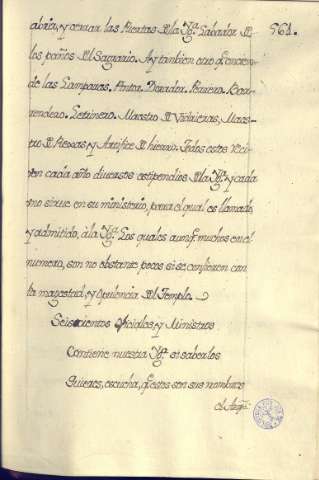 561.
abrir, y cerrar las Puertas de la Ygª. Labador de
los paños del Sagrario. Ay tambien otro q̃ encien-
de las Lamparas. Pintor. Dorador. Perrero. Bar-
rendero. Letrinero. Maestro de Vidrieras, Maes-
tro de Rexas, y Artifice de hierro. Todos estos reci-
ben cada año diversos estipendios de la Ygª. y cada
uno sirve en su ministerio, para el qual es llamado,
y admitido, à la Ygª. Los quales aunq̃ muchos en el
numero, son no obstante pocos si se confieren con
la magestad, y Opulencia del Templo.
Seiscientos Oficiales, y Ministros
Contiene nuestra Ygª. si saberlos
Quieres, escucha, q̃ estos son sus nombres